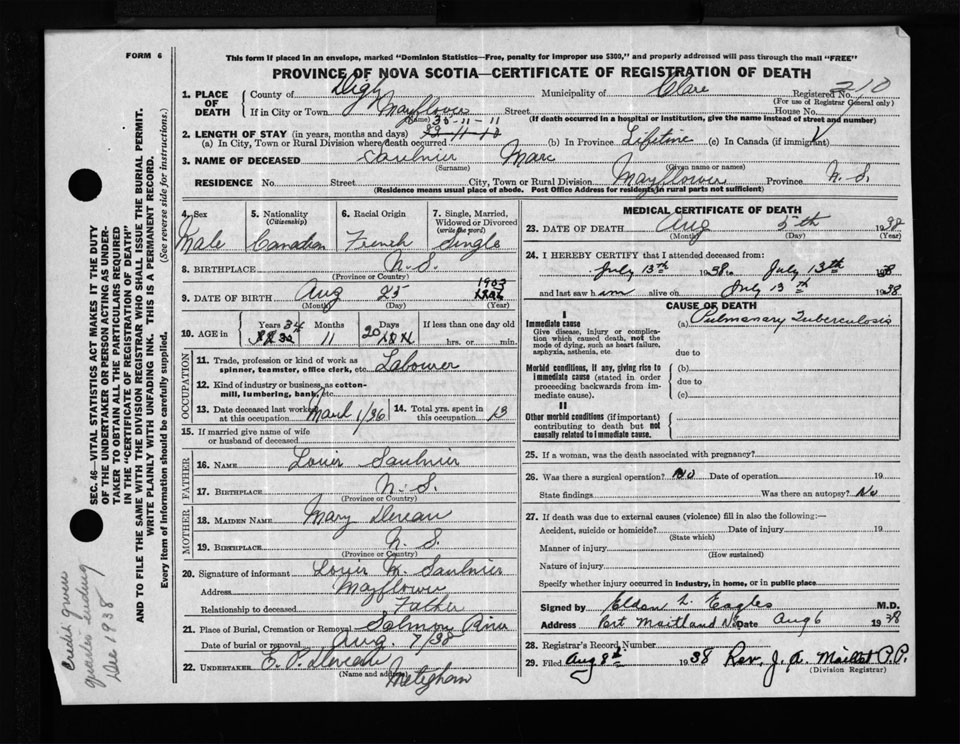 FORM 6
This form if placed in an envelope, marked "Dominion Statistics—Free, penalty for improper use $300," and properly addressed will pass through the mail "FREE"
PROVINCE OF NOVA SCOTIA—CERTIFICATE OF REGISTRATION OF DEATH
1. PLACE OF DEATH
County of Digby Municipality of Clare Registered No. 210
(For use of Registrar General only)
If in City or Town Mayflower Street House No.
(Name) (If death occurred in a hospital or institution, give the name instead of street and number)
2. LENGTH OF STAY (in years, months and days) 35-11-11
(a) In City, Town or Rural Division where death occurred (b) In Province Lifetime (c) In Canada (if immigrant)
3. NAME OF DECEASED Saulnier Marc
(Surname) (Given name or names)
RESIDENCE No. Street City, Town or Rural Division Mayflower Province N.S.
(Residence means usual place of abode. Post Office Address for residents in rural parts not sufficient)
4. Sex Male
5. Nationality (Citizenship) Canadian
6. Racial Origin French
7. Single, Married, Widowed or Divorced (write the word) Single
8. BIRTHPLACE N.S.
(Province or Country)
9. DATE OF BIRTH Aug 25 1903
(Month) (Day) (Year)
10. AGE in Years 34 Months 11 Days 20 If less than one day old hrs. or min.
OCCUPATION
11. Trade, profession or kind of work as spinner, teamster, office clerk, etc. Labourer
12. Kind of industry or business, as cotton-mill, lumbering, bank, etc.
13. Date deceased last worked at this occupation March 1/36
14. Total yrs. spent in this occupation 13
15. If married give name of wife or husband of deceased
FATHER
16. NAME Louis Saulnier
17. BIRTHPLACE N.S.
(Province or Country)
MOTHER
18. MAIDEN NAME Mary Deveau
19. BIRTHPLACE N.S.
(Province or Country)
20. Signature of informant Louis M. Saulnier
Address Mayflower
Relationship to deceased Father
21. Place of Burial, Cremation or Removal Salmon River
Date of burial or removal Aug. 7/38
22. UNDERTAKER E. P. Deveau
(Name and address) Meteghan
MEDICAL CERTIFICATE OF DEATH
23. DATE OF DEATH Aug 5th 1938
(Month) (Day)
24. I HEREBY CERTIFY that I attended deceased from:
July 13th 1938 to July 13th 1938
and last saw him alive on July 13th 1938
CAUSE OF DEATH
I
Immediate cause (a) Pulmonary Tuberculosis
Give disease, injury or complication which caused death, not the mode of dying, such as heart failure, asphyxia, asthenia, etc.
due to
Morbid conditions, if any, giving rise to immediate cause (stated in order proceeding backwards from immediate cause).
(b)
due to
(c)
II
Other morbid conditions (if important) contributing to death but not causally related to immediate cause.
25. If a woman, was the death associated with pregnancy?
26. Was there a surgical operation? No Date of operation 19
State findings Was there an autopsy? No
27. If death was due to external causes (violence) fill in also the following:—
Accident, suicide or homicide? Date of injury 19
(State which)
Manner of injury
(How sustained)
Nature of injury
Specify whether injury occurred in industry, in home, or in public place
Signed by Eldon L. Eagles M.D.
Address Port Maitland N.S. Date Aug 6 1938
28. Registrar's Record Number
29. Filed Aug 8th 1938 Rev. J. A. Maillet P.P.
(Division Registrar)
SEC. 46—VITAL STATISTICS ACT MAKES IT THE DUTY
OF THE UNDERTAKER OR PERSON ACTING AS UNDER-
TAKER TO OBTAIN ALL THE PARTICULARS REQUIRED
IN THE "CERTIFICATE OF REGISTRATION OF DEATH"
AND TO FILE THE SAME WITH THE DIVISION REGISTRAR WHO SHALL ISSUE THE BURIAL PERMIT.
WRITE PLAINLY WITH UNFADING INK. THIS IS A PERMANENT RECORD.
Every item of information should be carefully supplied. (See reverse side for instructions.)
Credit given
quarter ending
Dec 1938